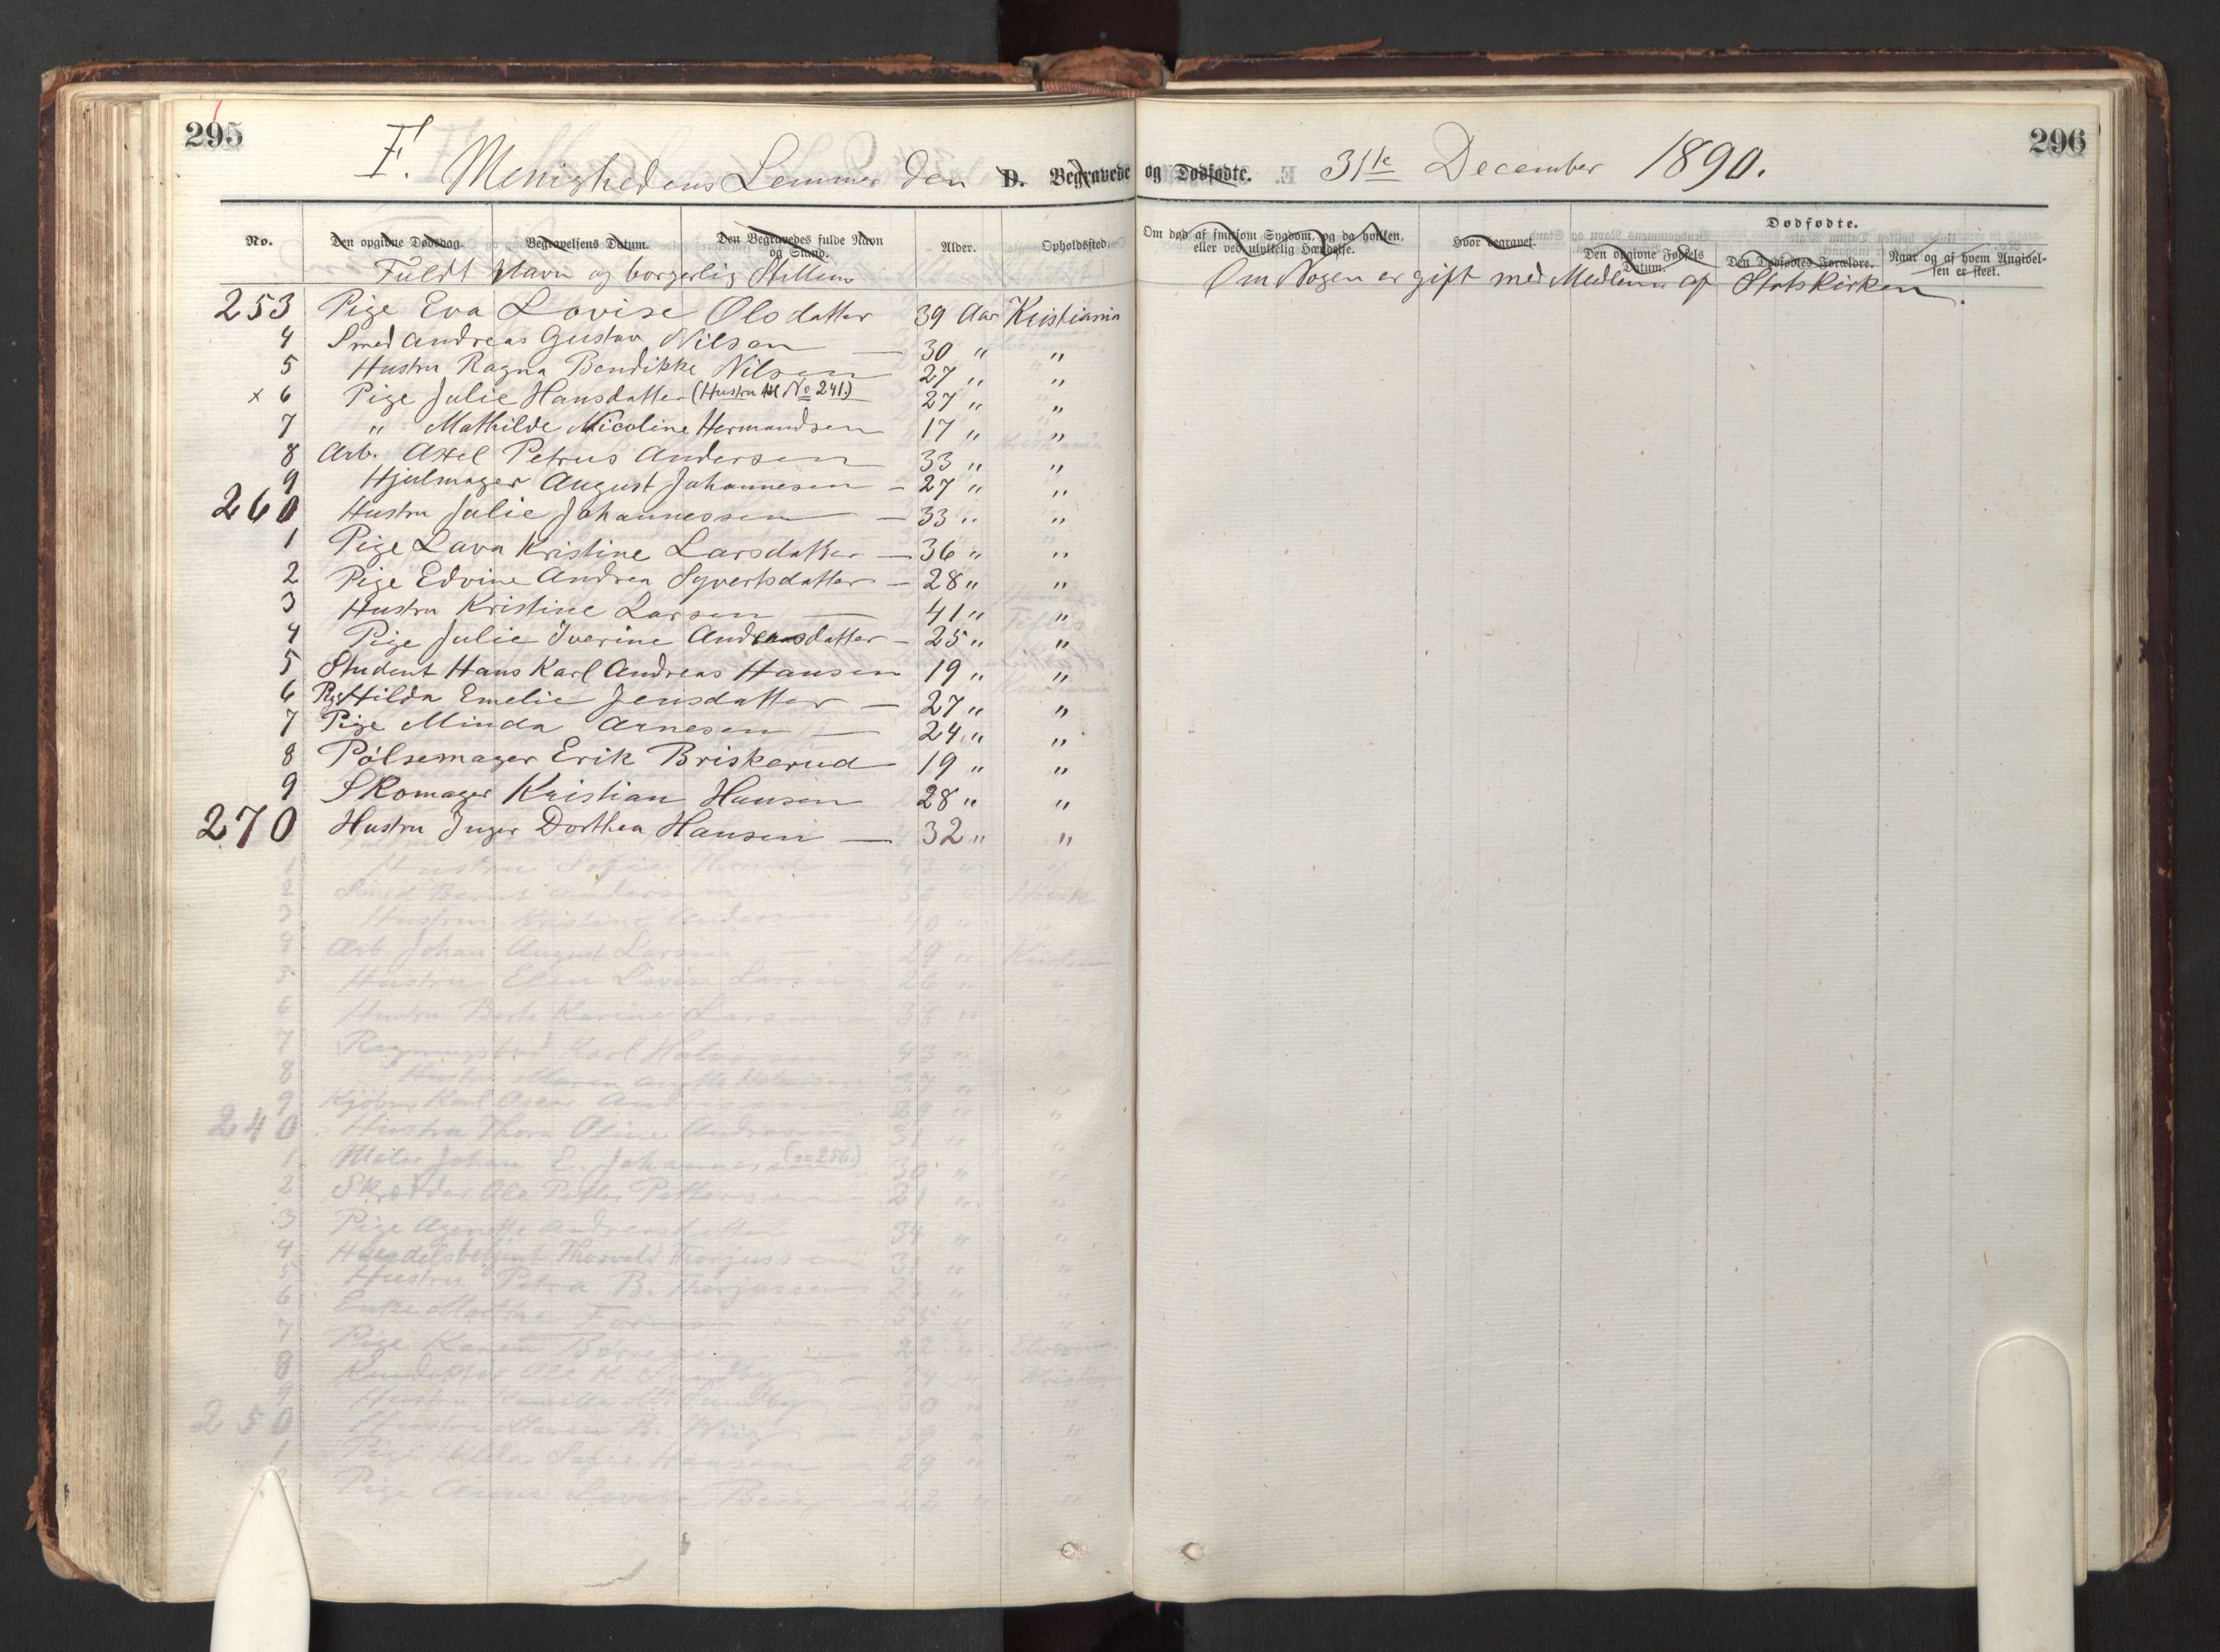 295
296
F. Menighedens Lemmer den D. Begravede og Dødfødte. 31te December 1890.
No.
Den opgivne Dødsdag.
Begravelsens Datum.
Den Begravedes fulde Navn og Stand.
Alder.
Opholdssted.
Om død af smitsom Sygdom, og da hvilken, eller ved ulykkelig Hændelse.
Hvor begravet.
Dødfødte.
Den opgivne Fødsels Datum.
Den Dødfødtes Forældre.
Naar og af hvem Angivelsen er skeet.
Fuldt Navn og borgerlig Stilling
Om Nogen er gift med Medlem af Statskirken.
253 Pige Eva Lovise Olsdatter 39 Aar Kristiania
4 Smed Andreas Gustav Nilsen — 30 " "
5 Hustru Ragna Bendikke Nilsen 27 " "
x 6 Pige Julie Hansdatter (Hustru til No 241) 27 " "
7 " Mathilde Nicoline Hermandsen 17 " "
8 Arb. Axel Petrus Andersen 33 " "
9 Hjulmager August Johannesen — 27 " "
260 Hustru Julie Johannessen — 33 " "
1 Pige Lava Kristine Larsdatter — 36 " "
2 Pige Edvine Andrea Syvertsdatter — 28 " "
3 Hustru Kristine Larsen — 41 " "
4 Pige Julie Iverine Andreasdatter — 25 " "
5 Student Hans Karl Andreas Hansen 19 " "
6 Pige Hilda Emelie Jensdatter — 27 " "
7 Pige Minda Arnesen — 24 " "
8 Pølsemager Erik Briskerud 19 " "
9 Skomager Kristian Hansen 28 " "
270 Hustru Inger Dorthea Hansen — 32 " "